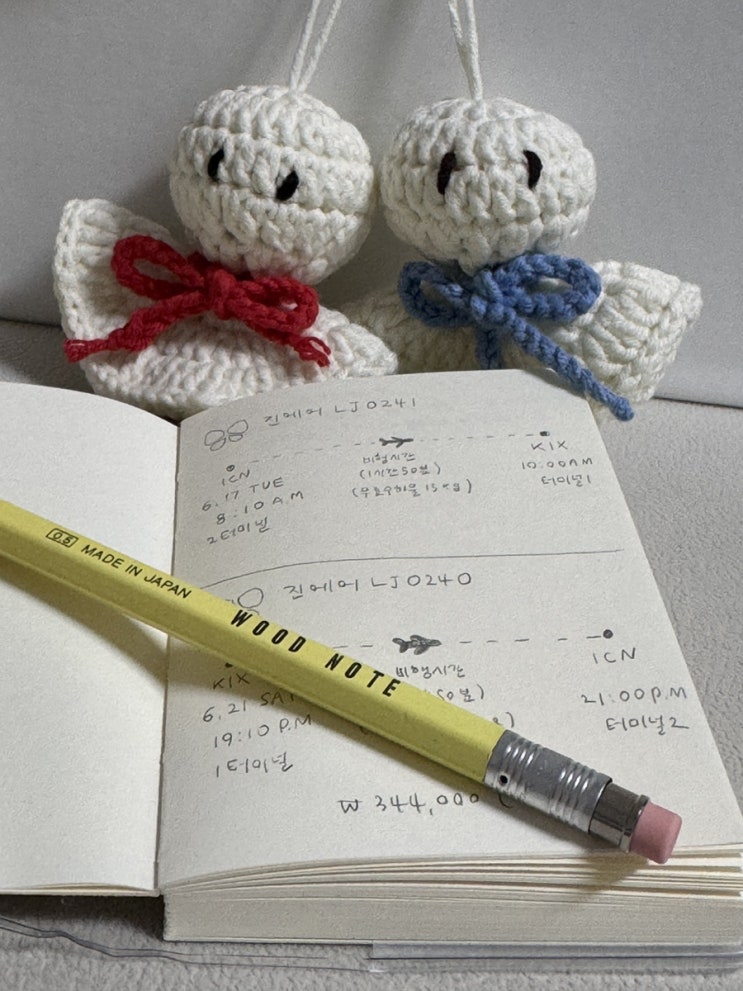 진에어 LJ0241
ICN
6.17 TUE
8:10 A.M
2터미널
비행시간
(1시간50분)
(무료수하물 15kg)
KIX
10:00AM
터미널1
진에어 LJ0240
KIX
6.21 SAT
19:10 P.M
1터미널
비행시간
50분)
ICN
21:00P.M
터미널2
₩ 344,000
0.5 MADE IN JAPAN
WOOD NOTE